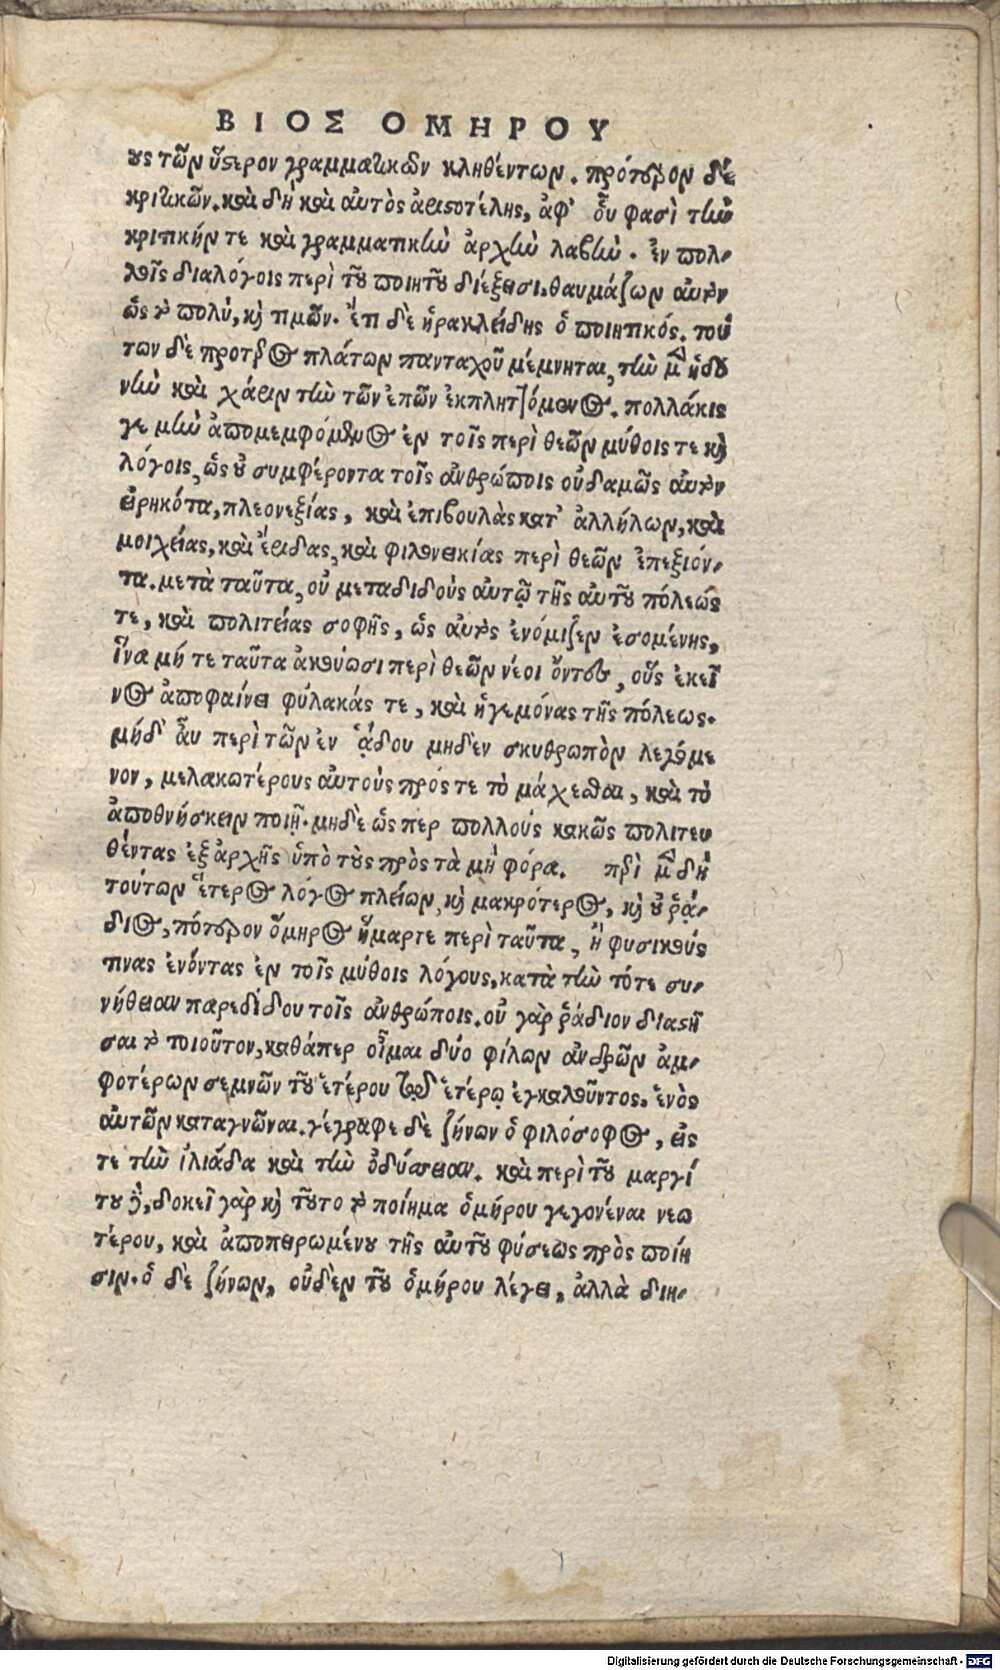 ΒΙΟΣ ΟΜΗΡΟΥ
ους τῶν ὕστερον γραμματικῶν κληθέντων. πρότερον δὲ
κριτικῶν. καὶ δὴ καὶ αὐτὸς ἀριστοτέλης, ἀφ' οὗ φασὶ τὴν
κριτικήν τε καὶ γραμματικὴν ἀρχὴν λαβεῖν. ἐν πολ-
λοῖς διαλόγοις περὶ τοῦ ποιητοῦ διέξεισι. θαυμάζων αὐτὸν
ὡς τὸ πολύ, καὶ τιμῶν. ἔτι δὲ ἡρακλείδης ὁ ποιητικός. τού
των δὲ προτερος πλάτων πανταχοῦ μέμνηται, τὴν μὲν ἡδο
νὴν καὶ χάριν τὴν τῶν ἐπῶν ἐκπλητζόμενος. πολλάκις
γε μὴν ἀπομεμφόμενος ἐν τοῖς περὶ θεῶν μύθοις τε καὶ
λόγοις, ὡς οὐ συμφέροντα τοῖς ἀνθρώποις οὐδαμῶς αὐτὸν
εἰρηκότα, πλεονεξίας, καὶ ἐπιβουλὰς κατ' ἀλλήλων, καὶ
μοιχείας, καὶ ἔριδας, καὶ φιλονεικίας περὶ θεῶν ἐπεξιόν-
τα. μετὰ ταῦτα, οὐ μεταδιδοὺς αὐτῷ τῆς αὐτοῦ πόλεώς
τε, καὶ πολιτείας σοφῆς, ὡς αὐτὸς ἐνόμιζεν ἐσομένης,
ἵνα μή τε ταῦτα ἀκούωσι περὶ θεῶν νέοι ὄντες, οὓς ἐκεῖ
νος ἀποφαίνει φύλακάς τε, καὶ ἡγεμόνας τῆς πόλεως.
μήδ' ἂυ περὶ τῶν ἐν ᾅδου μηδὲν σκυθρωπὸν λεγόμε
νον, μελακωτέρους αὐτοὺς πρός τε τὸ μάχεσθαι, καὶ τὸ
ἀποθνήσκειν ποιῇ. μηδὲ ὥς περ πολλοὺς κακῶς πολιτευ
θέντας ἐξ ἀρχῆς ὑπὸ τοὺς πρὸς τὰ μὴ φόρα. περὶ μὲν δὴ
τούτων ἕτερος λόγος πλείων, καὶ μακρότερος, καὶ οὐ ῥᾴ-
διος, πότερον ὅμηρος ἥμαρτε περὶ ταῦτα, ἢ φυσικούς
τινας ἐνόντας ἐν τοῖς μύθοις λόγους, κατὰ τὴν τότε συ-
νήθειαν παρεδίδου τοῖς ἀνθρώποις. οὐ γὰρ ῥᾴδιον διαστῆ
σαι τὸ τοιοῦτον, καθάπερ οἶμαι δύο φίλων ἀνδρῶν ἀμ-
φοτέρων σεμνῶν τοῦ ἑτέρου τῷ δ' ἑτέρῳ ἐγκαλοῦντος. ἑνὸς
αὐτῶν καταγνῶναι. γέγραφε δὲ ζήνων ὁ φιλόσοφος, εἴς
τε τὴν ἰλιάδα καὶ τὴν ὀδύσσειαν. καὶ περὶ τοῦ μαργί
του δὲ, δοκεῖ γὰρ καὶ τοῦτο τὸ ποίημα ὁμήρου γεγονέναι νεω
τέρου, καὶ ἀποπειρωμένου τῆς αὐτοῦ φύσεως πρὸς ποίη
σιν. ὁ δὲ ζήνων, οὐδὲν τοῦ ὁμήρου λέγει, ἀλλὰ διη-
Digitalisierung gefördert durch die Deutsche Forschungsgemeinschaft - DFG